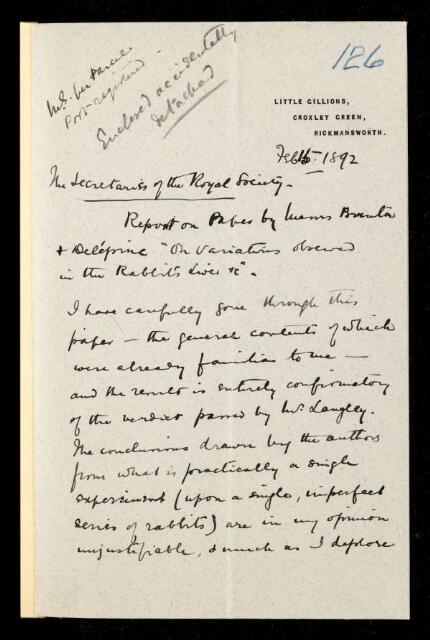 MS. per Parcel
Post-registered -
Enclosed accidentally
detached
126
LITTLE GILLIONS,
CROXLEY GREEN,
RICKMANSWORTH.
Feb 15. 1892
The Secretaries of the Royal Society.
Report on Paper by Messrs Brunton
& Delépine "On Variations observed
in the Rabbit's Liver &c".
I have carefully gone through this
paper — the general contents of which
were already familiar to me —
and the result is entirely confirmatory
of the verdict passed by Mr. Langley.
The conclusions drawn by the authors
from what is practically a single
experiment (upon a single, imperfect
series of rabbits) are in my opinion
unjustifiable, & much as I deplore